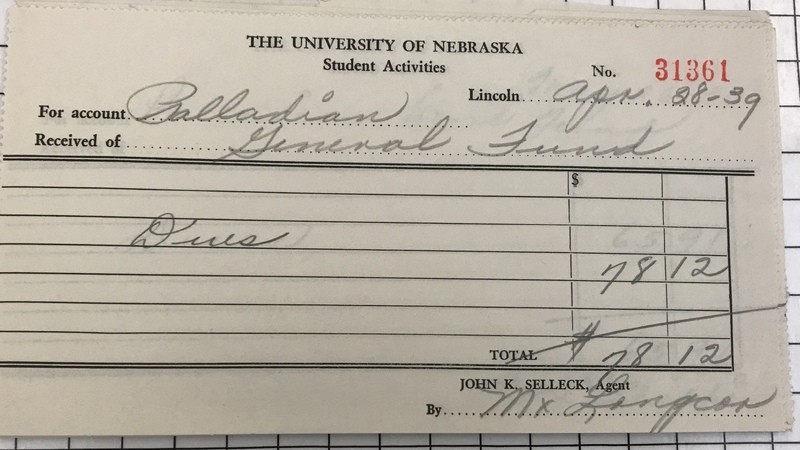 THE UNIVERSITY OF NEBRASKA
Student Activities
No. 31361
Lincoln Apr. 28-39
For account Palladian
Received of General Fund
$
Dues
78 12
TOTAL $ 78 12
JOHN K. SELLECK, Agent
By